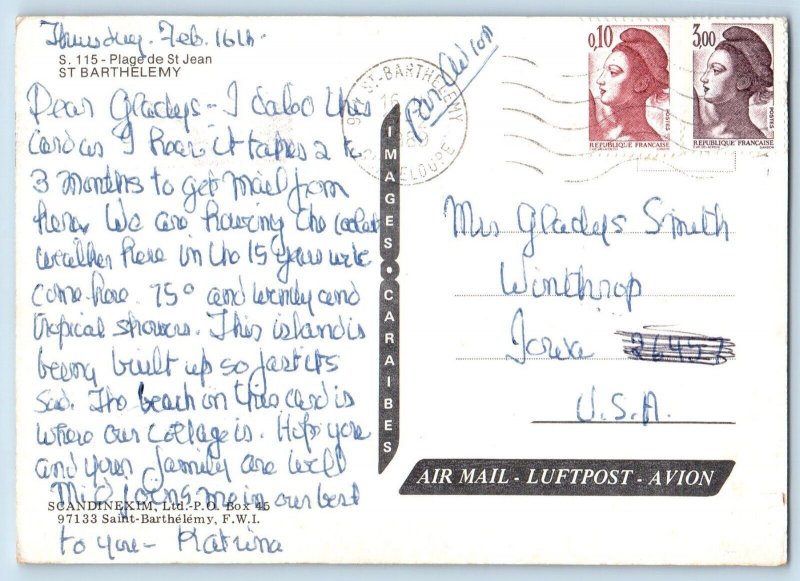 Thursday. Feb. 16th.
S. 115 - Plage de St Jean
ST BARTHELEMY
Dear Gladys - I daloo this
card as I hear it takes 2 to
3 months to get mail from
here. We are having the coolest
weather here in the 15 years we've
come here. 75° and windy and
tropical showers. This island is
being built up so fast its
sad. The beach on this card is
where our cottage is. Hope you
and your family are well
joins me in our best
to you - Katrina
SCANDINEXIM, Ltd.-P.O. Box 45
97133 Saint-Barthélémy, F.W.I.
IMAGES CARAIBES
Par Avion
ST-BARTHELEMY
16
GUADELOUPE
0,10
POSTES
REPUBLIQUE FRANÇAISE
3,00
POSTES
REPUBLIQUE FRANÇAISE
Mrs Gladys Smith
Winthrop
Iowa
U.S.A.
AIR MAIL - LUFTPOST - AVION